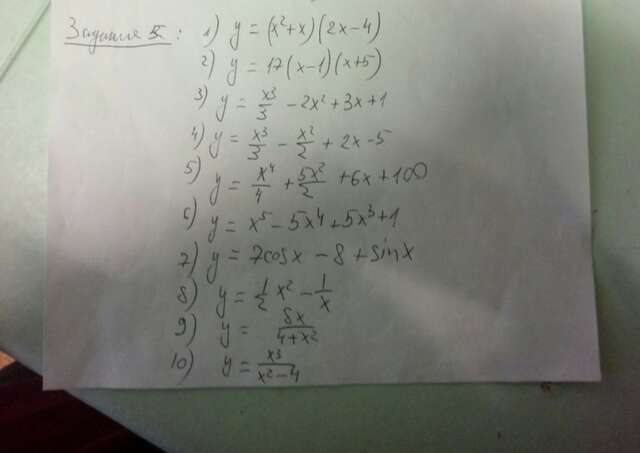 Задание 5: 1) y = (x²+x)(2x-4)
2) y = 17(x-1)(x+5)
3) y = x³/3 - 2x² + 3x + 1
4) y = x³/3 - x²/2 + 2x - 5
5) y = x⁴/4 + 5x²/2 + 6x + 100
6) y = x⁵ - 5x⁴ + 5x³ + 1
7) y = 7cosx - 8 + sinx
8) y = 1/2 x² - 1/x
9) y = 8x/(4+x²)
10) y = x³/(x²-4)